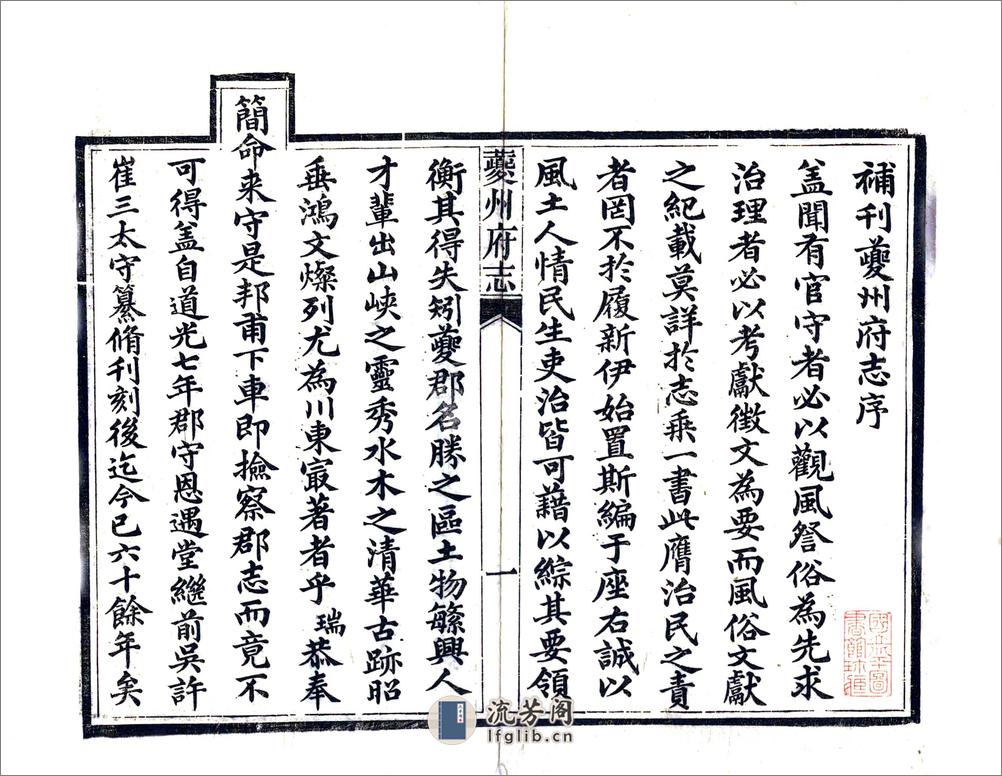 補刊夔州府志序
盖聞有官守者必以觀風詧俗為先求
治理者必以考獻徵文為要而風俗文獻
之紀載莫詳於志乘一書此膺治民之責
者罔不於履新伊始置斯編于座右誠以
風土人情民生吏治皆可藉以綜其要領
夔州府志
一
衡其得失矧夔郡名勝之區土物緐興人
才輩出山峽之靈秀水木之清華古跡昭
垂鴻文燦列尤為川東㝡著者乎瑞恭奉
簡命来守是邦甫下車即撿察郡志而竟不
可得盖自道光七年郡守恩遇堂繼前吳許
崔三太守纂脩刊刻後迄今已六十餘年矣
流芳阁
lfglib.cn